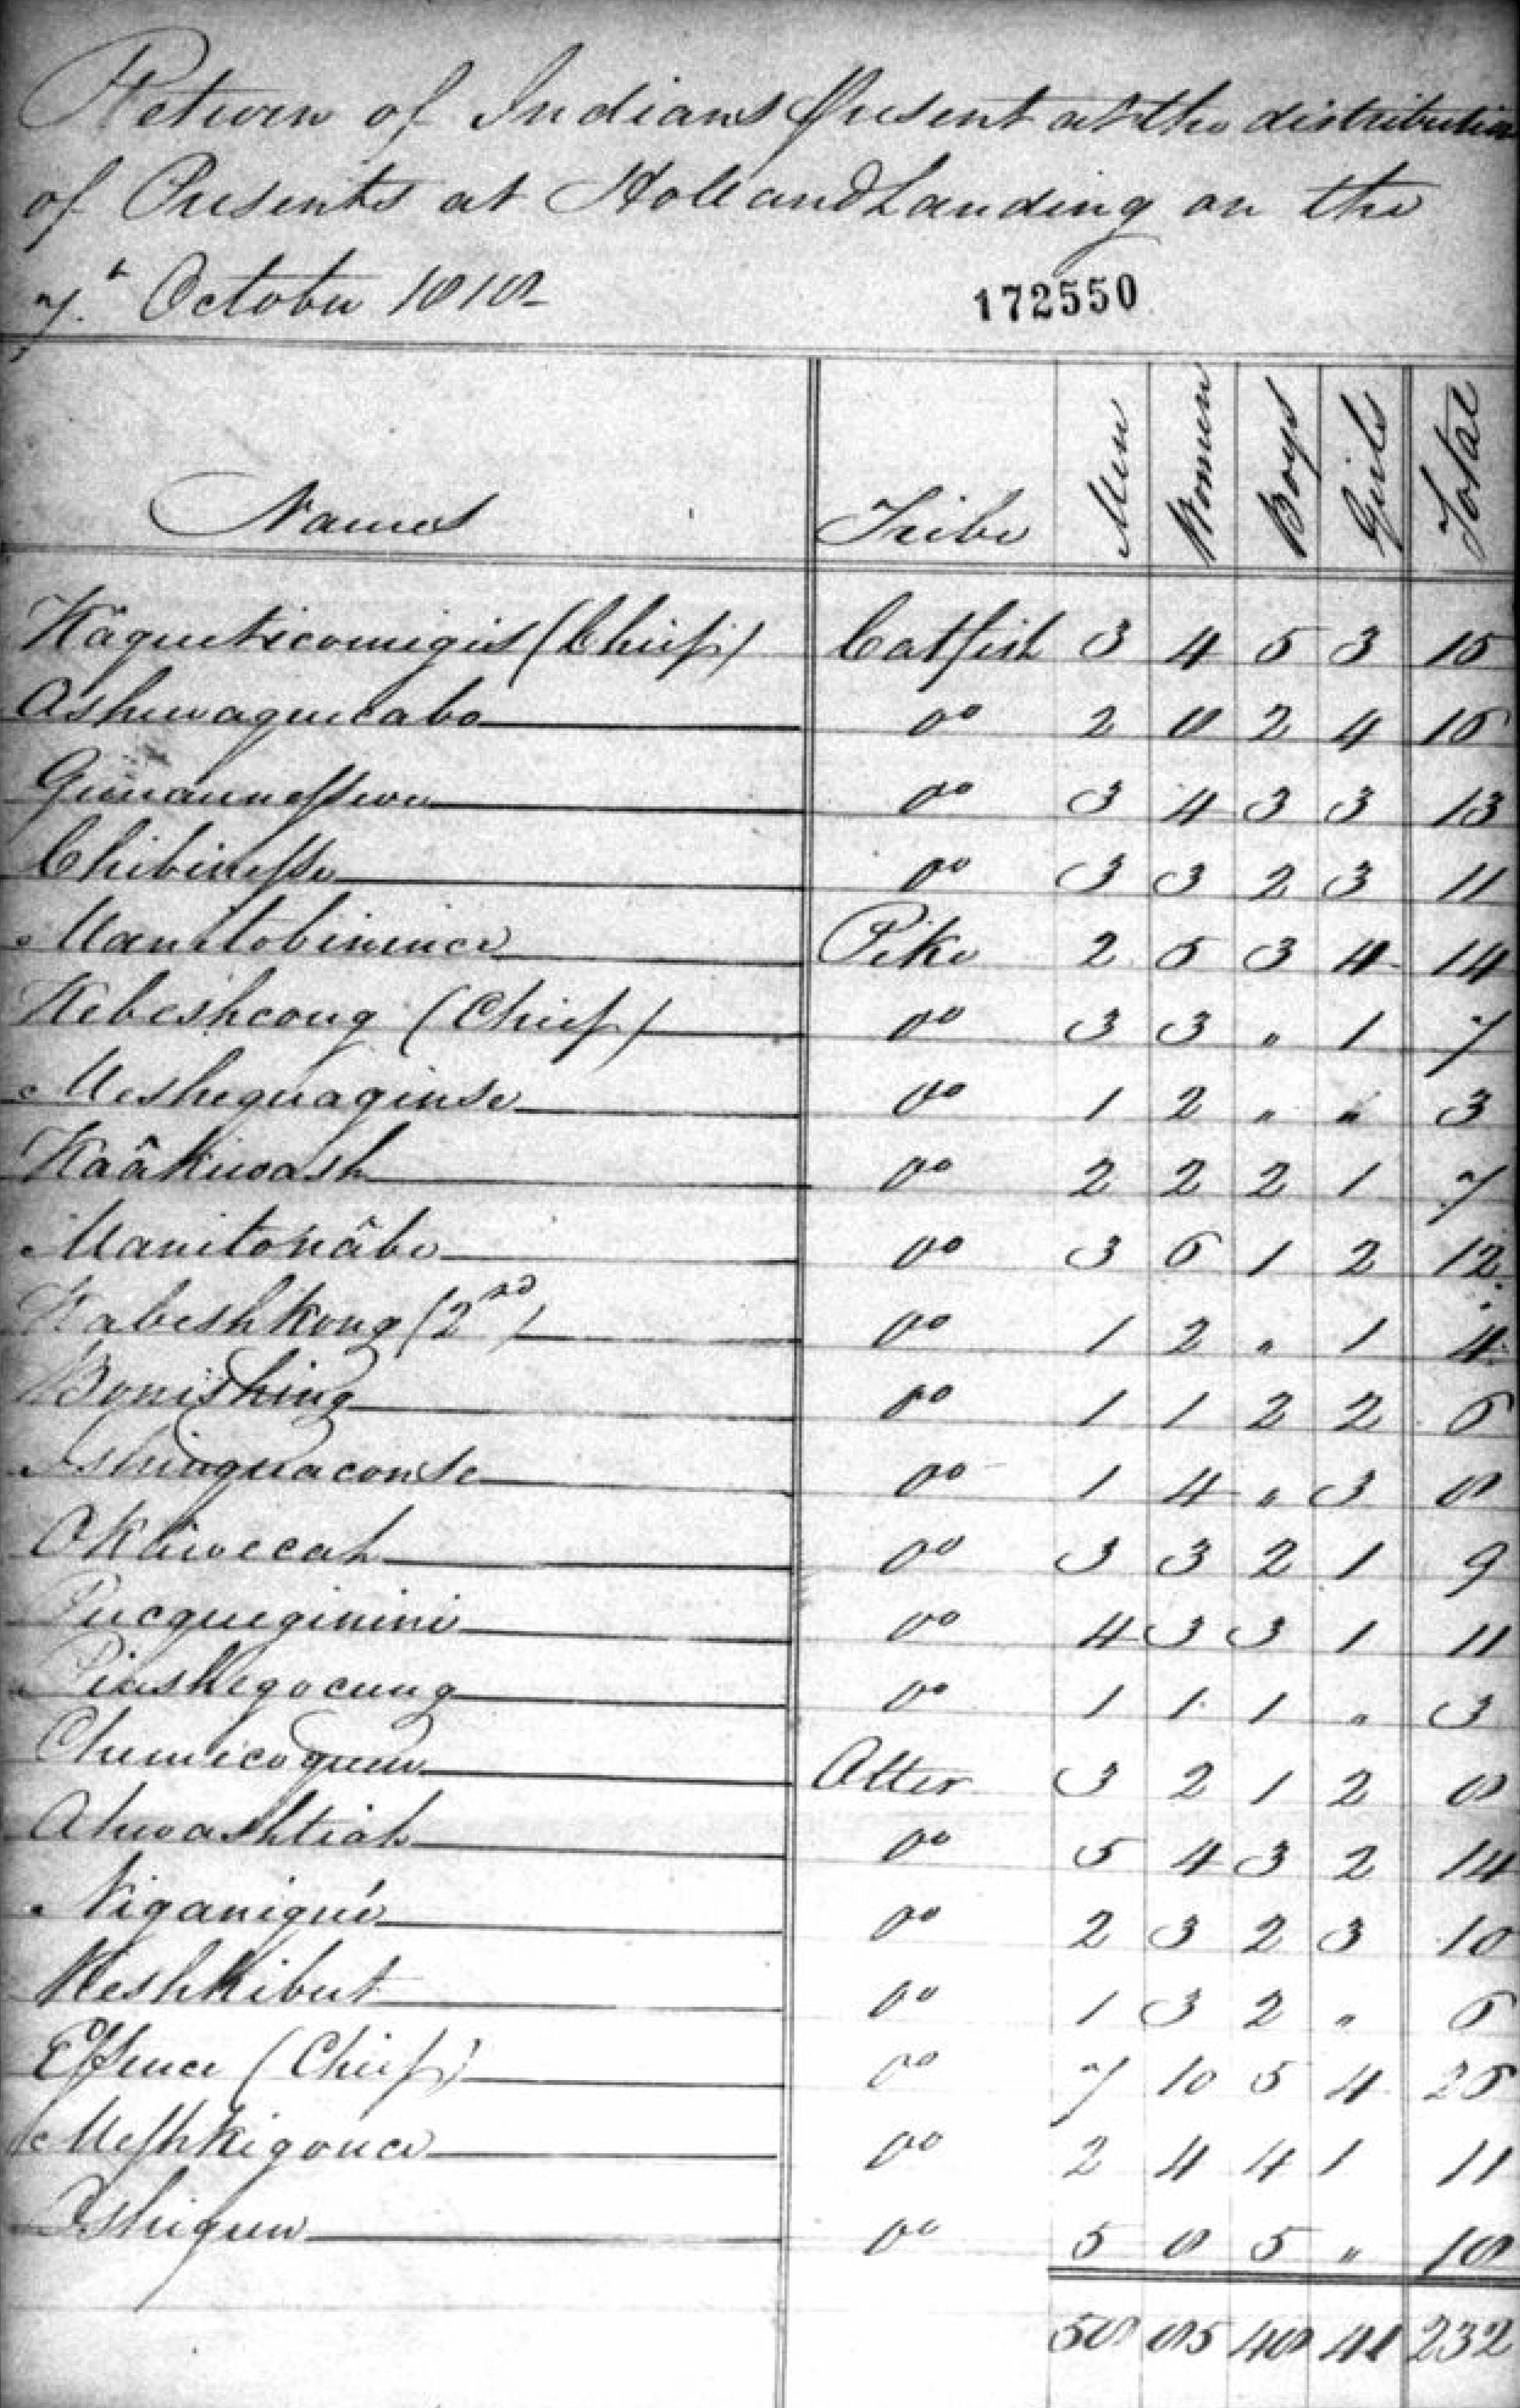 Return of Indians Present at the distribution
of Presents at Holland Landing on the
7th October 1818
172550
Names Tribe Men Women Boys Girls Total
Kaqueticomigis (Chief) Catfish 3 4 5 3 15
Ashuwaquecabo Do 2 8 2 4 16
Do 3 4 3 3 13
Chibinesse Do 3 3 2 3 11
Manitobinince Pike 2 5 3 4 14
Kebeshcong (Chief) Do 3 3 " 1 7
Meshequaginse Do 1 2 " " 3
Kaâkiwash Do 2 2 2 1 7
Manitonâbe Do 3 6 1 2 12
Kabeshkong (2nd) Do 1 2 " 1 4
Bonishing Do 1 1 2 2 6
Ishinquaconse Do 1 4 " 3 8
Okaiwecah Do 3 3 2 1 9
Pucqueginini Do 4 3 3 1 11
Piashkegocung Do 1 1 1 " 3
Chemicoquem Otter 3 2 1 2 8
Ahwashtiah Do 5 4 3 2 14
Niganiqué Do 2 3 2 3 10
Keshkibut Do 1 3 2 " 6
Essence (Chief) Do 7 10 5 4 26
Meshkigonce Do 2 4 4 1 11
Oshiguin Do 5 8 5 " 18
58 85 48 41 232